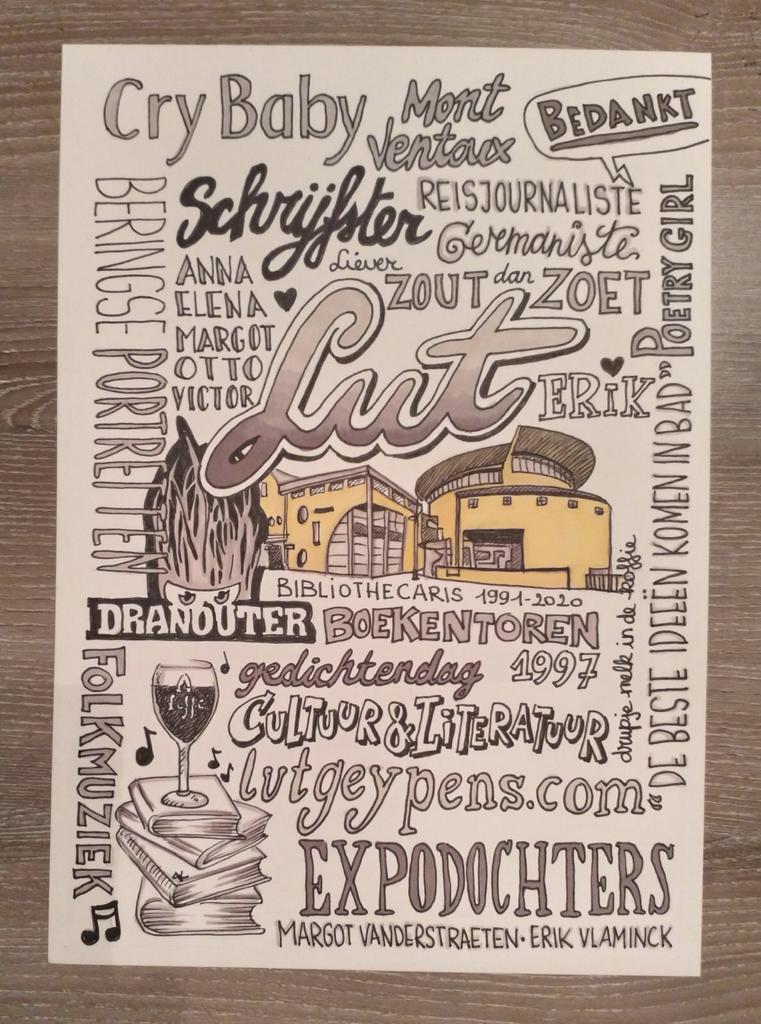 Cry Baby
Mont
Ventoux
BEDANKT
BERINGSE PORTRETTEN
Schrijfster
REISJOURNALISTE
Germaniste
Liever
ZOUT dan ZOET
POETRY GIRL
ANNA
ELENA
MARGOT
OTTO
VICTOR
Lut
ERIK
"DE BESTE IDEEËN KOMEN IN BAD"
drupje melk in de koffie
BIBLIOTHECARIS 1991-2020
DRANOUTER
BOEKENTOREN
gedichtendag 1997
CULTUUR & LITERATUUR
FOLKMUZIEK
leffe
lutgeypens.com
EXPODOCHTERS
MARGOT VANDERSTRAETEN · ERIK VLAMINCK